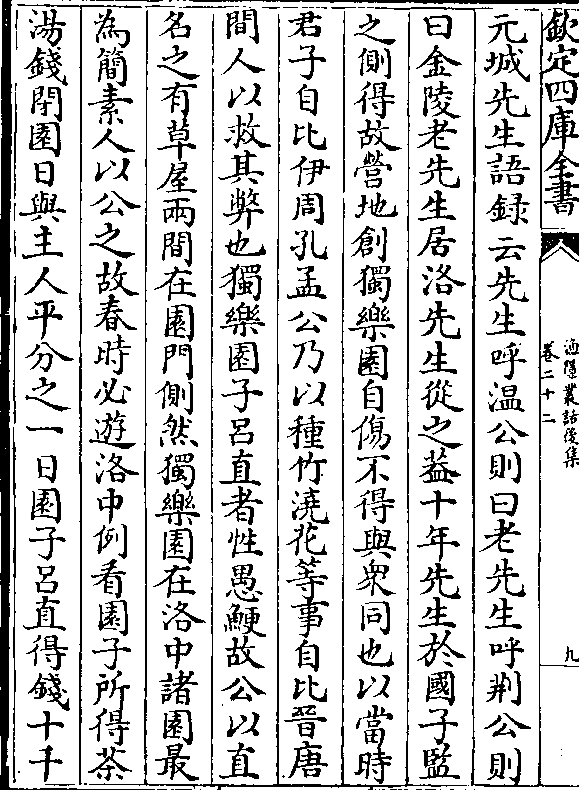 欽定四庫全書
漁隱叢話後集
卷二十二
九
元城先生語録云先生呼温公則曰老先生呼荆公則
曰金陵老先生居洛先生從之葢十年先生於國子監
之側得故營地創獨樂園自傷不得與衆同也以當時
君子自比伊周孔孟公乃以種竹澆花等事自比晉唐
間人以救其弊也獨樂園子呂直者性愚鯁故公以直
名之有草屋兩間在園門側然獨樂園在洛中諸園最
為簡素人以公之故春時必遊洛中例看園子所得茶
湯錢閉園日與主人平分之一日園子呂直得錢十千